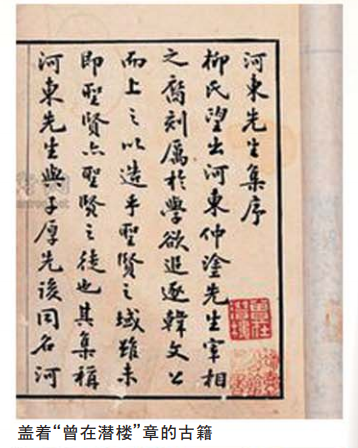 河東先生集序
柳氏望出河東仲塗先生宰相
之裔刻厲於學欲追逐韓文公
而上之以造乎聖賢之域雖未
即聖賢亦聖賢之徒也其集稱
河東先生與子厚先後同名河
曾在潛樓
盖着“曾在潜楼”章的古籍